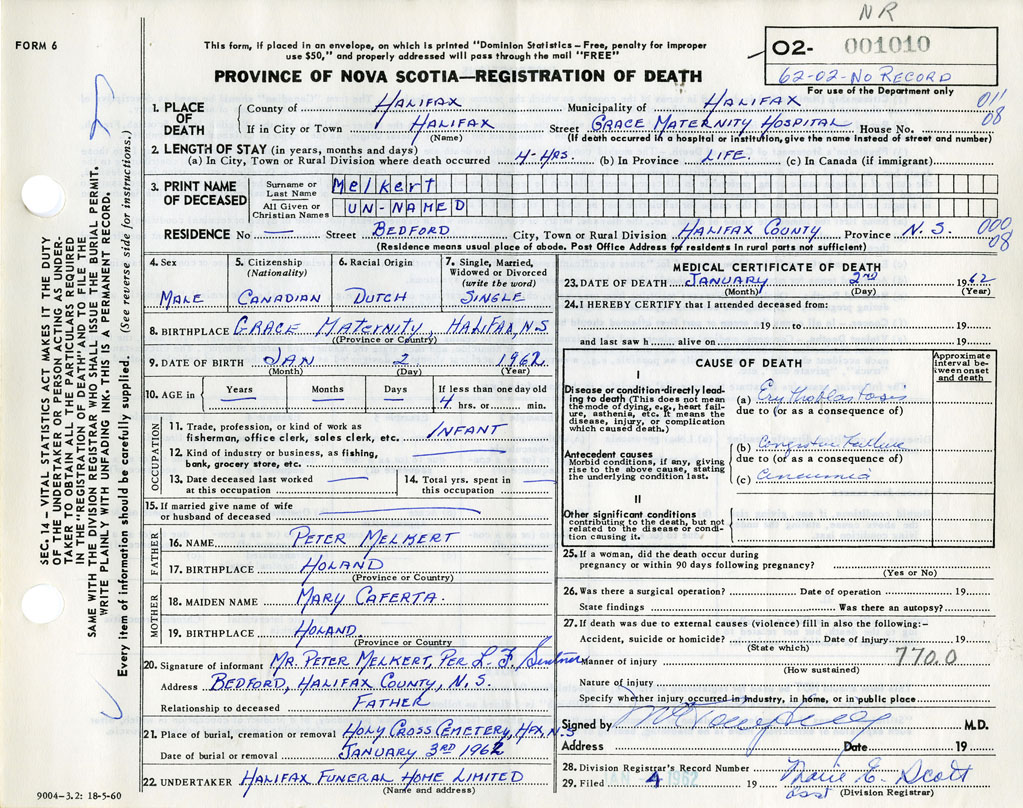 NR
FORM 6
This form, if placed in an envelope, on which is printed "Dominion Statistics – Free, penalty for improper
use $50," and properly addressed will pass through the mail "FREE"
PROVINCE OF NOVA SCOTIA—REGISTRATION OF DEATH
02- 001010
62-02-NO RECORD
For use of the Department only
011
08
1. PLACE OF DEATH
County of HALIFAX Municipality of HALIFAX
If in City or Town HALIFAX Street GRACE MATERNITY HOSPITAL House No.
(Name) (If death occurred in a hospital or institution, give the name instead of street and number)
2. LENGTH OF STAY (in years, months and days)
(a) In City, Town or Rural Division where death occurred 4-HRS. (b) In Province LIFE. (c) In Canada (if immigrant)
3. PRINT NAME OF DECEASED
Surname or Last Name Melkert
All Given or Christian Names UN-NAMED
RESIDENCE No — Street BEDFORD City, Town or Rural Division HALIFAX COUNTY Province N.S.
(Residence means usual place of abode. Post Office Address for residents in rural parts not sufficient)
000
08
4. Sex
MALE
5. Citizenship
(Nationality)
CANADIAN
6. Racial Origin
DUTCH
7. Single, Married,
Widowed or Divorced
(write the word)
SINGLE
8. BIRTHPLACE GRACE MATERNITY, HALIFAX, N.S
(Province or Country)
9. DATE OF BIRTH JAN 2 1962
(Month) (Day) (Year)
10. AGE in
Years —
Months —
Days —
If less than one day old
4 hrs. or min.
OCCUPATION
11. Trade, profession, or kind of work as
fisherman, office clerk, sales clerk, etc. INFANT
12. Kind of industry or business, as fishing,
bank, grocery store, etc. —
13. Date deceased last worked
at this occupation —
14. Total yrs. spent in
this occupation —
15. If married give name of wife
or husband of deceased —
FATHER
16. NAME PETER MELKERT
17. BIRTHPLACE HOLAND
(Province or Country)
MOTHER
18. MAIDEN NAME MARY CAFERTA.
19. BIRTHPLACE HOLAND
(Province or Country
20. Signature of informant MR. PETER MELKERT, PER L. F.
Address BEDFORD, HALIFAX COUNTY, N.S.
Relationship to deceased FATHER
21. Place of burial, cremation or removal HOLY CROSS CEMETERY, HFX, N.S
Date of burial or removal JANUARY 3RD 1962
22. UNDERTAKER HALIFAX FUNERAL HOME LIMITED
(Name and address)
9004-3.2: 18-5-60
MEDICAL CERTIFICATE OF DEATH
23. DATE OF DEATH JANUARY 2nd 1962
(Month) (Day) (Year)
24. I HEREBY CERTIFY that I attended deceased from:
19 to 19
and last saw h alive on 19
CAUSE OF DEATH
Approximate
interval be-
tween onset
and death
I
Disease or condition directly lead-
ing to death (This does not mean
the mode of dying, e.g., heart fail-
ure, asthenia, etc. It means the
disease, injury, or complication
which caused death.)
(a) Erythroblastosis
due to (or as a consequence of)
Antecedent causes
Morbid conditions, if any, giving
rise to the above cause, stating
the underlying condition last.
(b) Congestive Failure
due to (or as a consequence of)
(c) Anaemia
II
Other significant conditions
contributing to the death, but not
related to the disease or condi-
tion causing it.
25. If a woman, did the death occur during
pregnancy or within 90 days following pregnancy?
(Yes or No)
26. Was there a surgical operation? Date of operation 19
State findings Was there an autopsy?
27. If death was due to external causes (violence) fill in also the following:–
Accident, suicide or homicide? Date of injury 19
(State which)
770.0
Manner of injury
(How sustained)
Nature of injury
Specify whether injury occurred in industry, in home, or in public place
Signed by M.D.
Address Date 19
28. Division Registrar's Record Number
29. Filed JAN 4 1962 19 Marie E. Scott
asst (Division Registrar)
SEC. 14 – VITAL STATISTICS ACT MAKES IT THE DUTY
OF THE UNDERTAKER OR PERSON ACTING AS UNDER-
TAKER TO OBTAIN ALL THE PARTICULARS REQUIRED
IN THE "REGISTRATION OF DEATH" AND TO FILE THE
SAME WITH THE DIVISION REGISTRAR WHO SHALL ISSUE THE BURIAL PERMIT.
WRITE PLAINLY WITH UNFADING INK. THIS IS A PERMANENT RECORD.
Every item of information should be carefully supplied. (See reverse side for instructions.)